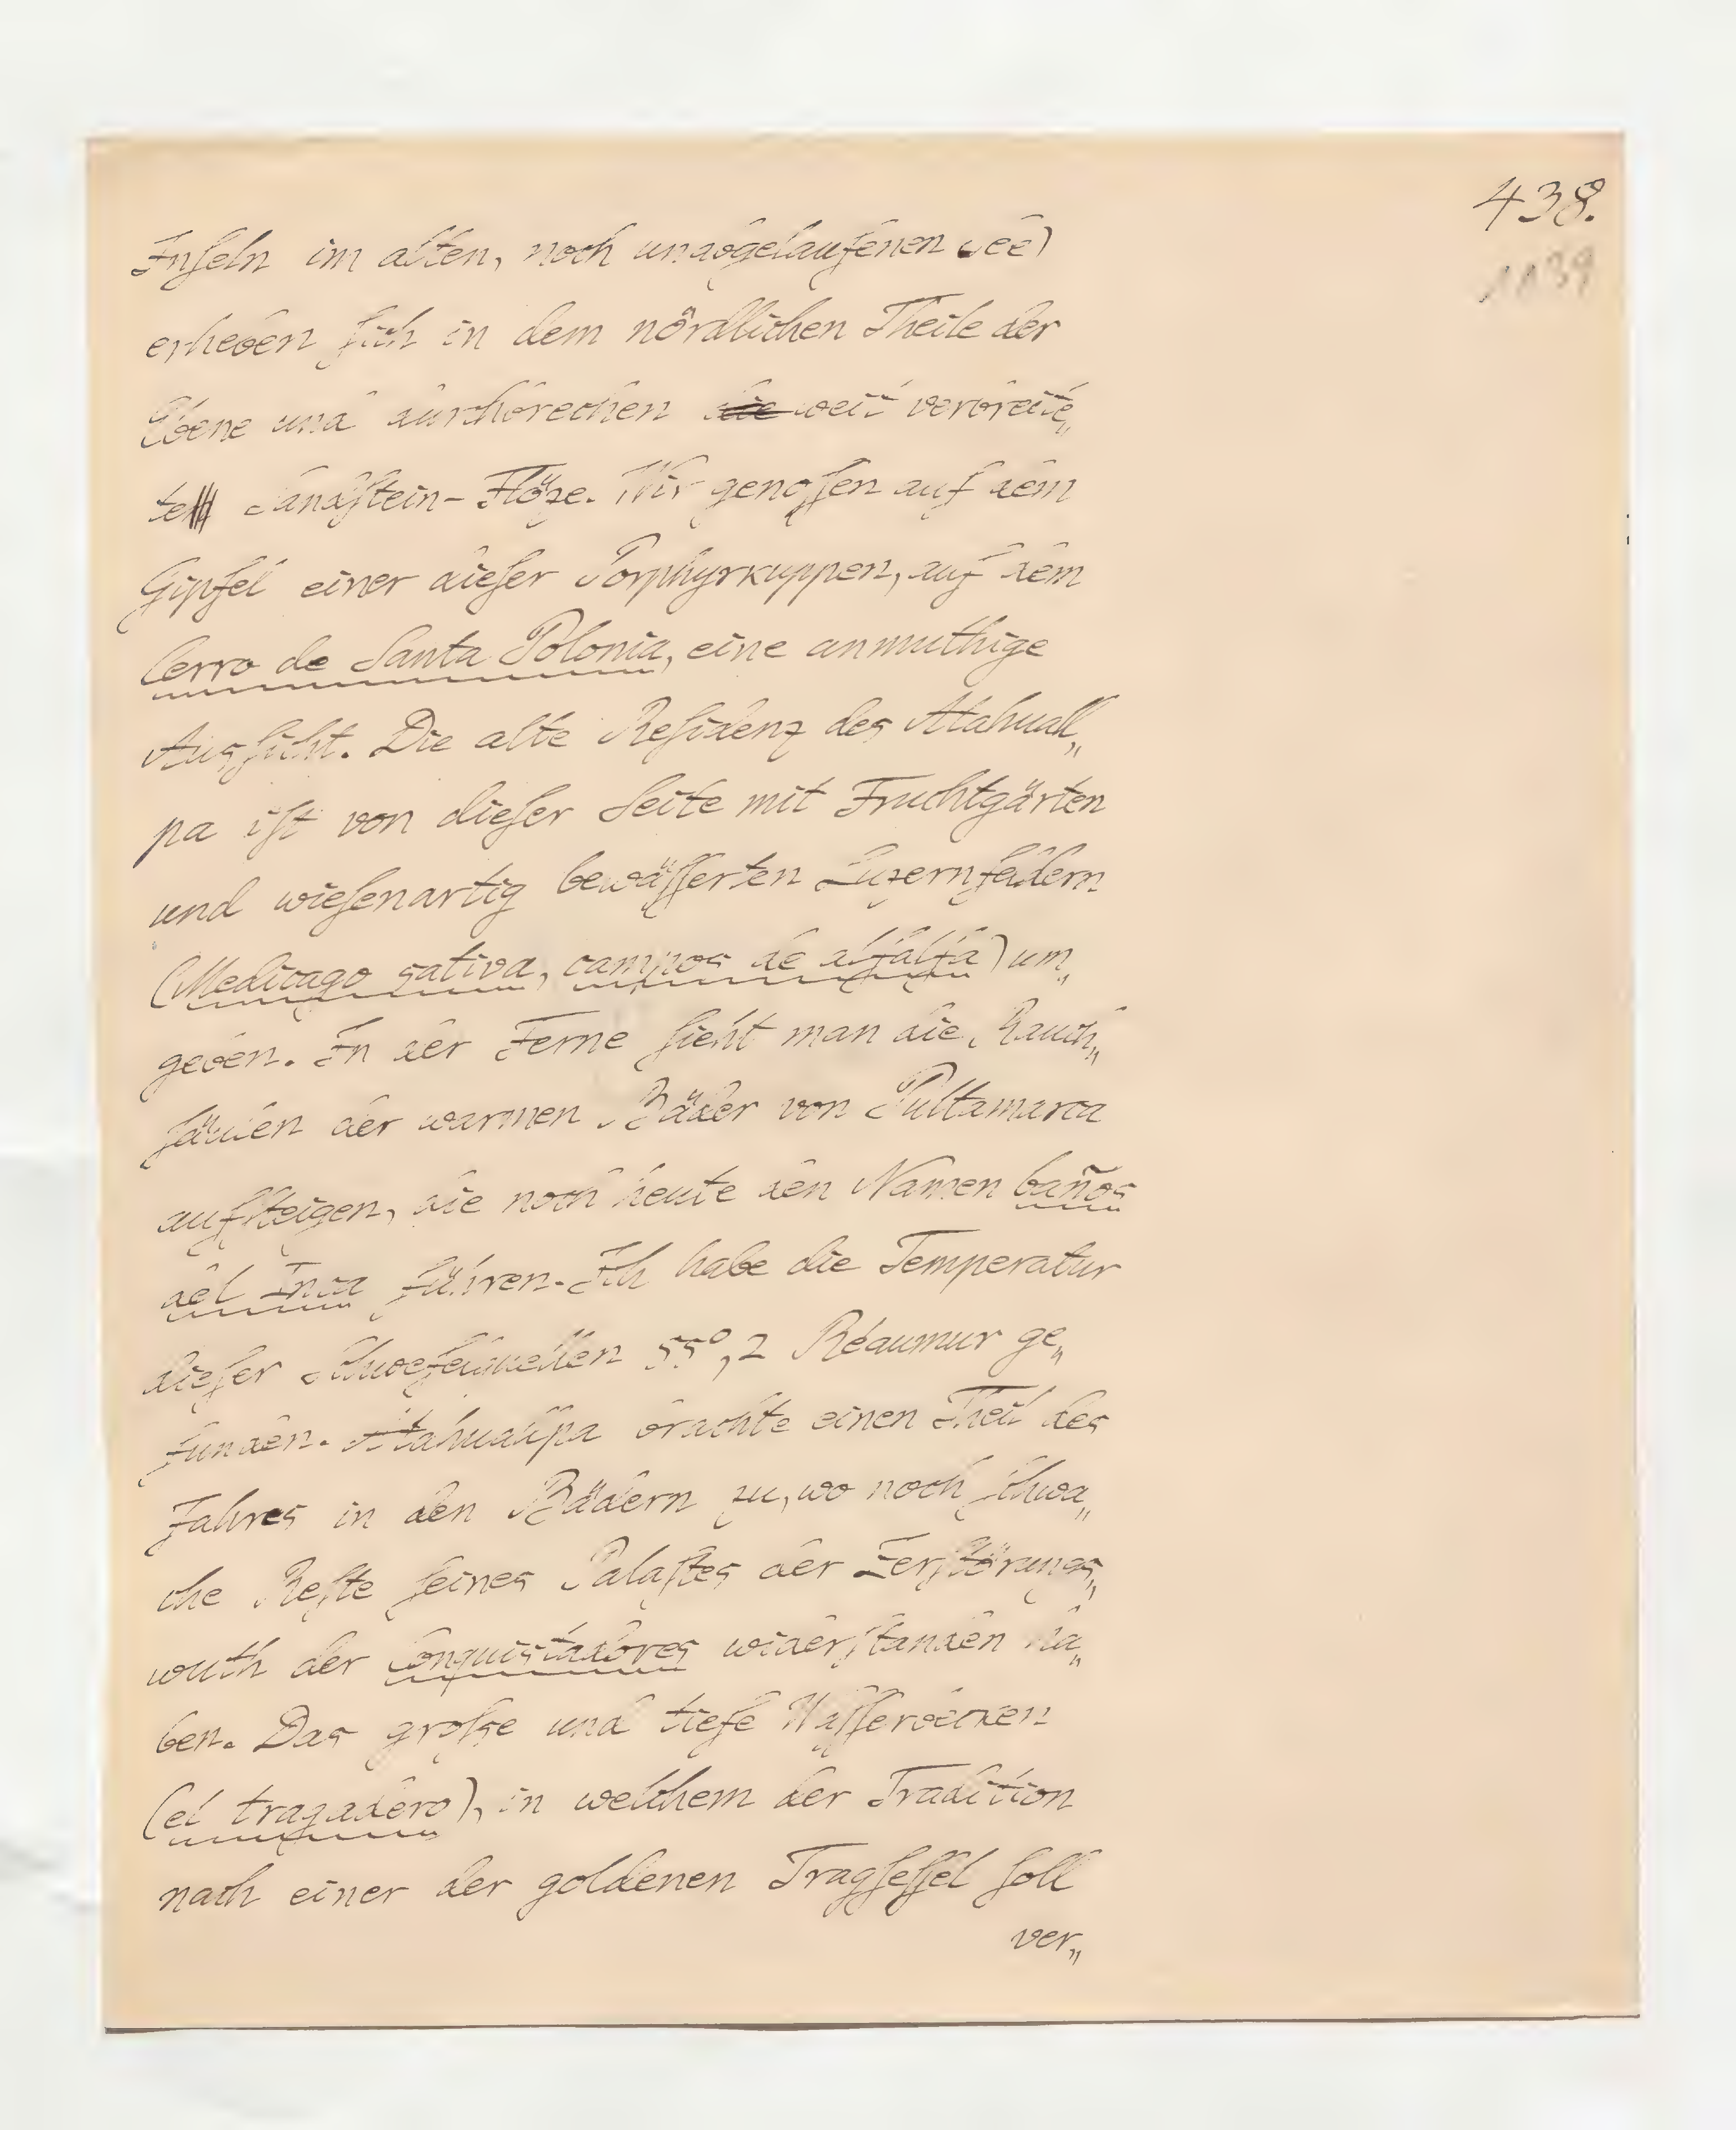 438.
1139
Inseln im alten, noch unabgelaufenen See)
erheben sich in dem nördlichen Theile der
Ebene und durchbrechen die weit verbreite„
te Sandstein-Flöze. Wir genossen auf dem
Gipfel einer dieser Porphyrkuppen, auf dem
Cerro de Santa Polonia, eine anmuthige
Aussicht. Die alte Residenz des Atahuall„
pa ist von dieser Seite mit Fruchtgärten
und wiesenartig bewässerten Luzernfeldern
(Medicago sativa, campos de alfalfa) um„
geben. In der Ferne sieht man die Rauch„
säulen der warmen Bäder von Pultamarca
aufsteigen, die noch heute den Namen baños
del Inca führen. Ich habe die Temperatur
dieser Schwefelquellen 55°,2 Réaumur ge„
funden. Atahuallpa brachte einen Theil des
Jahres in den Bädern zu, wo noch schwa„
che Reste seines Palastes der Zerstörungs„
wuth der Conquistadores widerstanden ha„
ben. Das große und tiefe Wasserbecken
(el tragadero), in welchem der Tradition
nach einer der goldenen Tragsessel soll
ver„